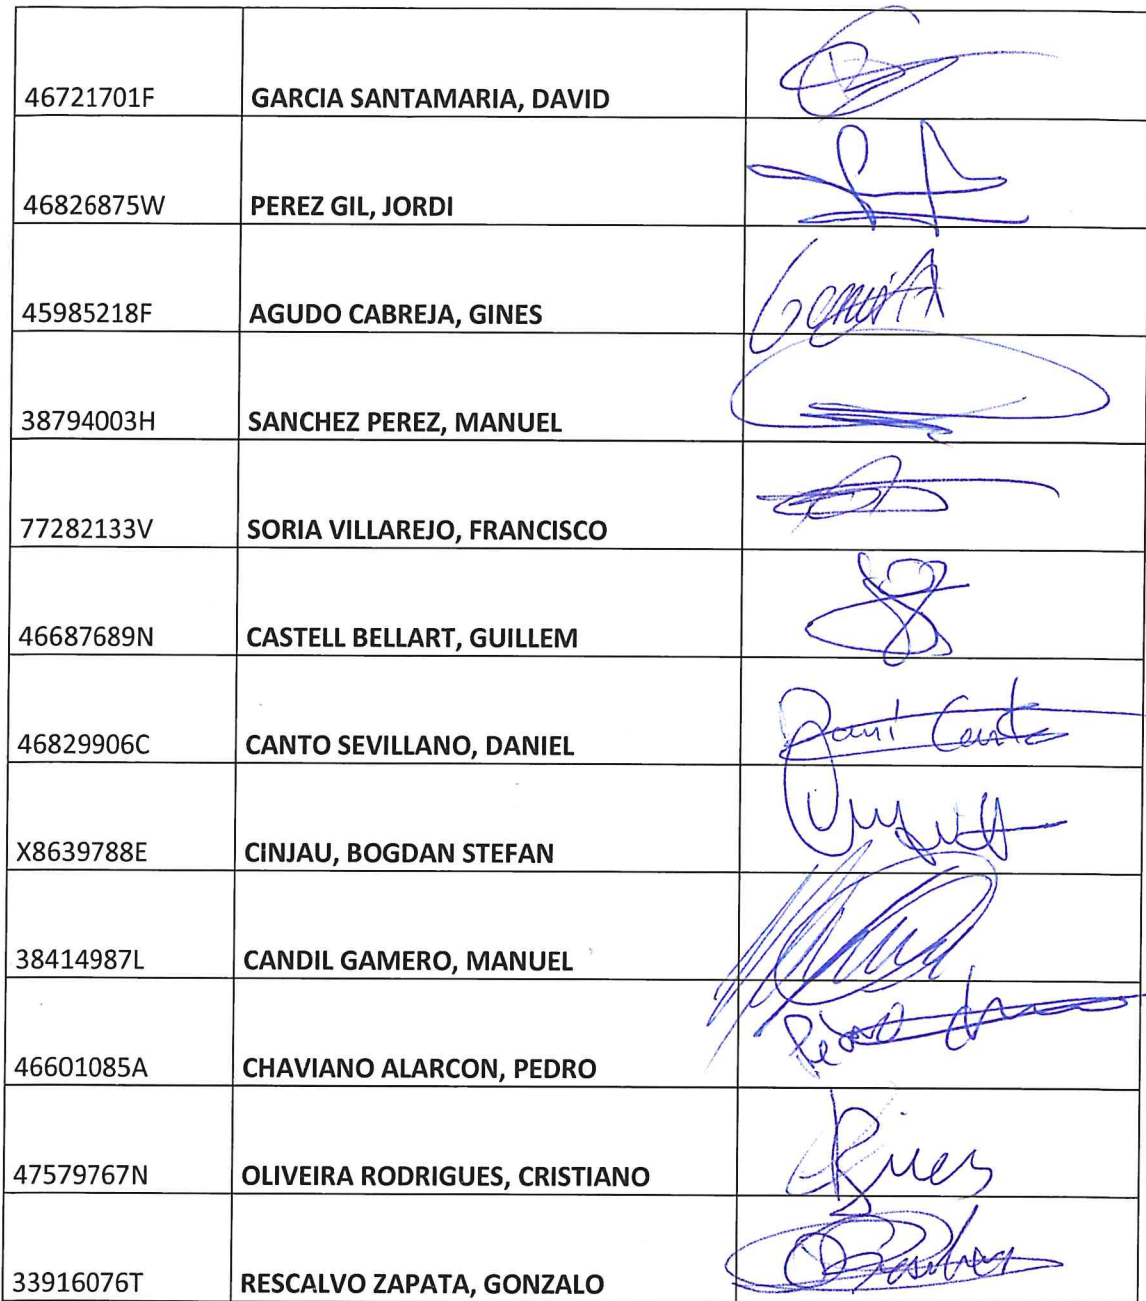 46721701F GARCIA SANTAMARIA, DAVID
46826875W PEREZ GIL, JORDI
45985218F AGUDO CABREJA, GINES
38794003H SANCHEZ PEREZ, MANUEL
77282133V SORIA VILLAREJO, FRANCISCO
46687689N CASTELL BELLART, GUILLEM
46829906C CANTO SEVILLANO, DANIEL Dani Canto
X8639788E CINJAU, BOGDAN STEFAN
38414987L CANDIL GAMERO, MANUEL
46601085A CHAVIANO ALARCON, PEDRO Pedro
47579767N OLIVEIRA RODRIGUES, CRISTIANO
33916076T RESCALVO ZAPATA, GONZALO